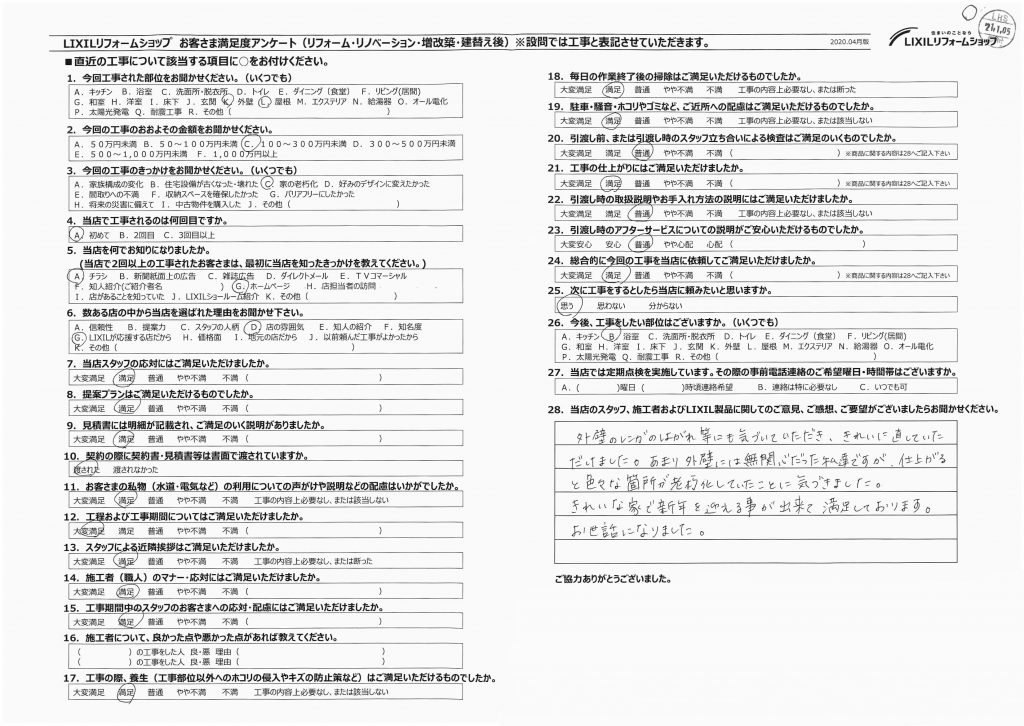 LIXILリフォームショップ お客さま満足度アンケート（リフォーム・リノベーション・増改築・建替え後）※設問では工事と表記させていただきます。
2020.04月版
住まいのことなら
LIXILリフォームショップ
LHS
21.1.05
■直近の工事について該当する項目に○をお付けください。
1．今回工事された部位をお聞かせください。（いくつでも）
A．キッチン B．浴室 C．洗面所・脱衣所 D．トイレ E．ダイニング（食堂） F．リビング(居間)
G．和室 H．洋室 I．床下 J．玄関 K．外壁 L．屋根 M．エクステリア N．給湯器 O．オール電化
P．太陽光発電 Q．耐震工事 R．その他（ ）
2．今回の工事のおおよその金額をお聞かせください。
A．５０万円未満 B．５０～１００万円未満 C．１００～３００万円未満 D．３００～５００万円未満
E．５００～１,０００万円未満 F．１,０００万円以上
3．今回の工事のきっかけをお聞かせください。（いくつでも）
A．家族構成の変化 B．住宅設備が古くなった・壊れた C．家の老朽化 D．好みのデザインに変えたかった
E．間取りへの不満 F．収納スペースを確保したかった G．バリアフリーにしたかった
H．将来の災害に備えて I．中古物件を購入した J．その他（ ）
4．当店で工事されるのは何回目ですか。
A．初めて B．2回目 C．3回目以上
5．当店を何でお知りになりましたか。
(当店で２回以上の工事されたお客さまは、最初に当店を知ったきっかけを教えてください。)
A．チラシ B．新聞紙面上の広告 C．雑誌広告 D．ダイレクトメール E．ＴＶコマーシャル
F．知人紹介(ご紹介者名 ) G．ホームページ H．店担当者の訪問
I．店があることを知っていた J．LIXILショールーム紹介 K．その他（ ）
6．数ある店の中から当店を選ばれた理由をお聞かせ下さい。
A．信頼性 B．提案力 C．スタッフの人柄 D．店の雰囲気 E．知人の紹介 F．知名度
G．LIXILが応援する店だから H．価格面 I．地元の店だから J．以前頼んだ工事がよかったから
K．その他（ ）
7．当店スタッフの応対にはご満足いただけましたか。
大変満足 満足 普通 やや不満 不満（ ）
8．提案プランはご満足いただけるものでしたか。
大変満足 満足 普通 やや不満 不満（ ）
9．見積書には明細が記載され、ご満足のいく説明がありましたか。
大変満足 満足 普通 やや不満 不満（ ）
10．契約の際に契約書・見積書等は書面で渡されていますか。
渡された 渡されなかった
11．お客さまの私物（水道・電気など）の利用についての声がけや説明などの配慮はいかがでしたか。
大変満足 満足 普通 やや不満 不満 工事の内容上必要なし、または該当しない
12．工程および工事期間についてはご満足いただけましたか。
大変満足 満足 普通 やや不満 不満（ ）
13．スタッフによる近隣挨拶はご満足いただけましたか。
大変満足 満足 普通 やや不満 不満 工事の内容上必要なし、または断った
14．施工者（職人）のマナー・応対にはご満足いただけましたか。
大変満足 満足 普通 やや不満 不満（ ）
15．工事期間中のスタッフのお客さまへの応対・配慮にはご満足いただけましたか。
大変満足 満足 普通 やや不満 不満（ ）
16．施工者について、良かった点や悪かった点があれば教えてください。
（ ）の工事をした人 良・悪 理由（ ）
（ ）の工事をした人 良・悪 理由（ ）
17．工事の際、養生（工事部位以外へのホコリの侵入やキズの防止策など）はご満足いただけるものでしたか。
大変満足 満足 普通 やや不満 不満 工事の内容上必要なし、または該当しない
18．毎日の作業終了後の掃除はご満足いただけるものでしたか。
大変満足 満足 普通 やや不満 不満 工事の内容上必要なし、または断った
19．駐車・騒音・ホコリやゴミなど、ご近所への配慮はご満足いただけるものでしたか。
大変満足 満足 普通 やや不満 不満 工事の内容上必要なし、または該当しない
20．引渡し前、または引渡し時のスタッフ立ち合いによる検査はご満足のいくものでしたか。
大変満足 満足 普通 やや不満 不満（ ）※商品に関する内容は28へご記入下さい
21．工事の仕上がりにはご満足いただけましたか。
大変満足 満足 普通 やや不満 不満（ ）※商品に関する内容は28へご記入下さい
22．引渡し時の取扱説明やお手入れ方法の説明にはご満足いただけましたか。
大変満足 満足 普通 やや不満 不満 工事の内容上必要なし、または該当しない
23．引渡し時のアフターサービスについての説明がご安心いただけるものでしたか。
大変安心 安心 普通 やや心配 心配（ ）
24．総合的に今回の工事を当店に依頼してご満足いただけましたか。
大変満足 満足 普通 やや不満 不満（ ）※商品に関する内容は28へご記入下さい
25．次に工事をするとしたら当店に頼みたいと思いますか。
思う 思わない 分からない
26．今後、工事をしたい部位はございますか。（いくつでも）
A．キッチン B．浴室 C．洗面所・脱衣所 D．トイレ E．ダイニング（食堂） F．リビング(居間)
G．和室 H．洋室 I．床下 J．玄関 K．外壁 L．屋根 M．エクステリア N．給湯器 O．オール電化
P．太陽光発電 Q．耐震工事 R．その他（ ）
27．当店では定期点検を実施しています。その際の事前電話連絡のご希望曜日・時間帯はございますか。
A．（ ）曜日（ ）時頃連絡希望 B．連絡は特に必要なし C．いつでも可
28．当店のスタッフ、施工者およびLIXIL製品に関してのご意見、ご感想、ご要望がございましたらお聞かせください。
外壁のレンガのはがれ等にも気づいていただき、きれいに直していた
だけました。あまり外壁には無関心だった私達ですが、仕上がる
と色々な箇所が老朽化していたことに気づきました。
きれいな家で新年を迎える事が出来て満足しております。
お世話になりました。
ご協力ありがとうございました。